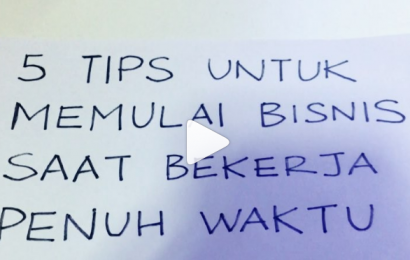 5 TIPS UNTUK
MEMULAI BISNIS
SAAT BEKERJA
PENUH WAKTU